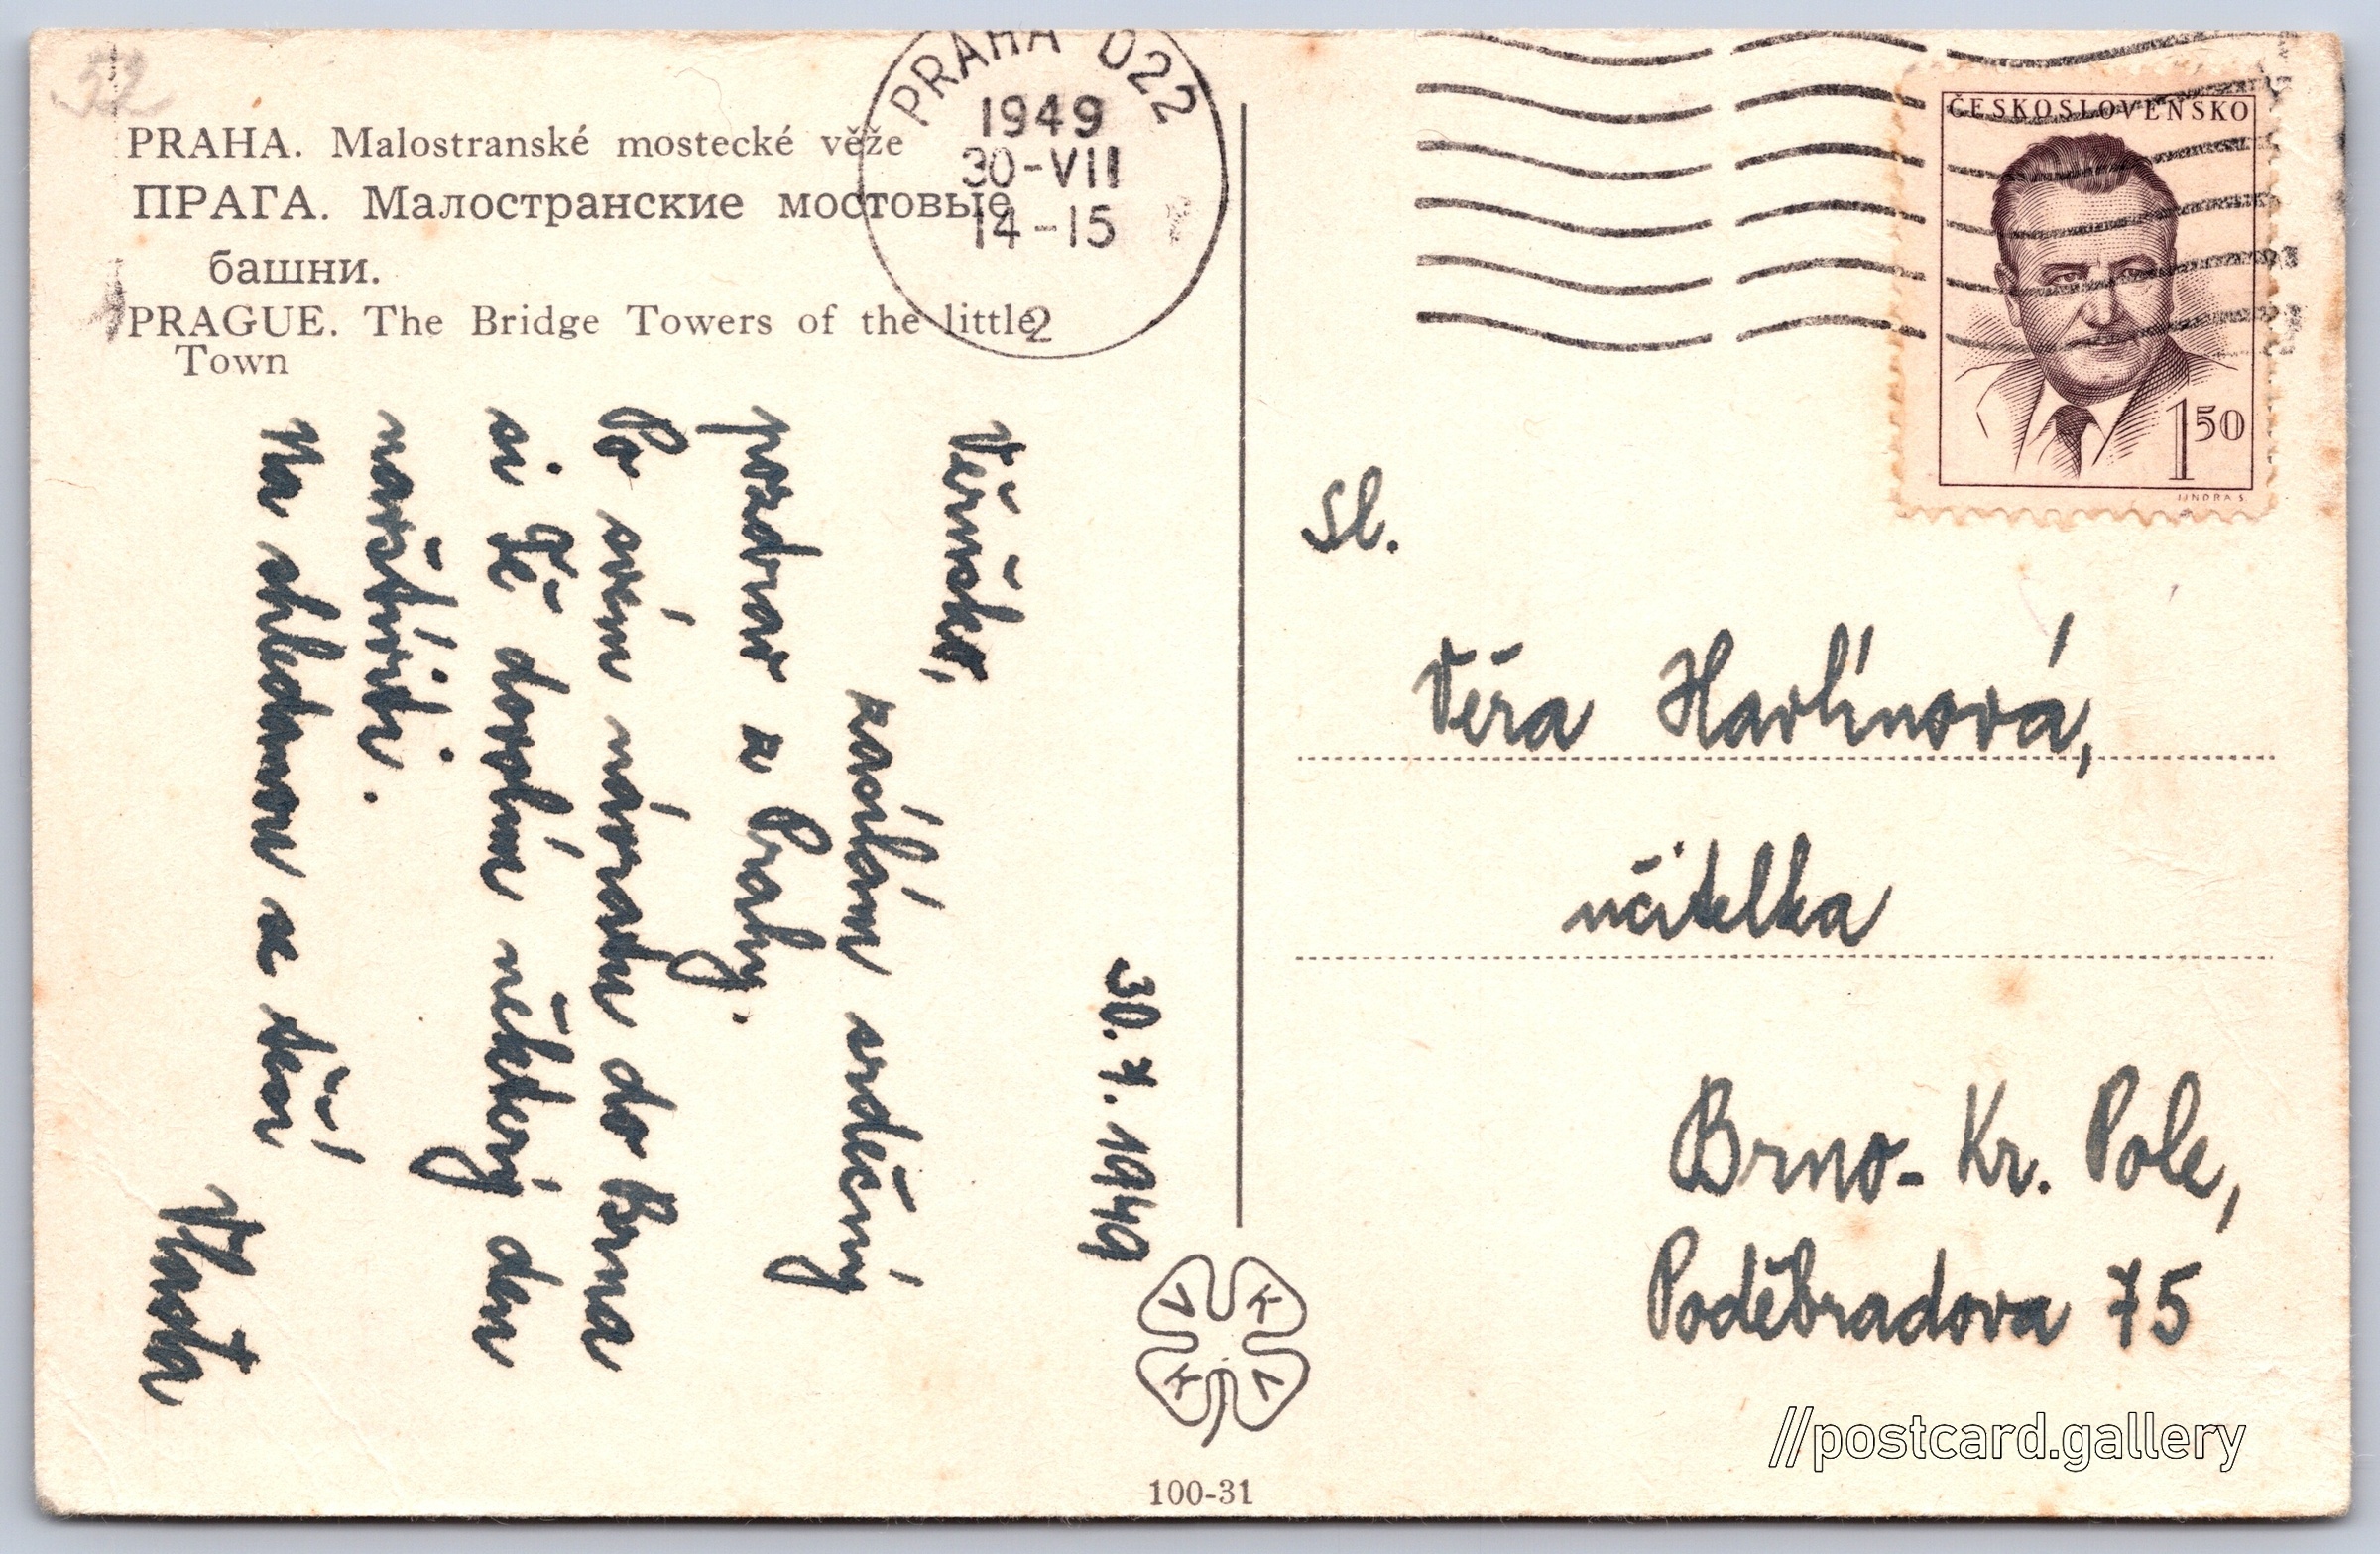 52
PRAHA. Malostranské mostecké věže
ПРАГА. Малостранские мостовые
башни.
PRAGUE. The Bridge Towers of the little
Town
PRAHA 022
1949
30-VII
14-15
2
ČESKOSLOVENSKO
1 50
JINDRA S
30. 7. 1949
Věruško,
zasílám srdečný
pozdrav z Prahy.
Po svém návratu do Brna
si Tě dovolím některý den
navštíviti.
Na shledanou se těší
Vlasta
Sl.
Věra Havlínová,
učitelka
Brno - Kr. Pole,
Poděbradova 75
V K
K V
100-31
//postcard.gallery